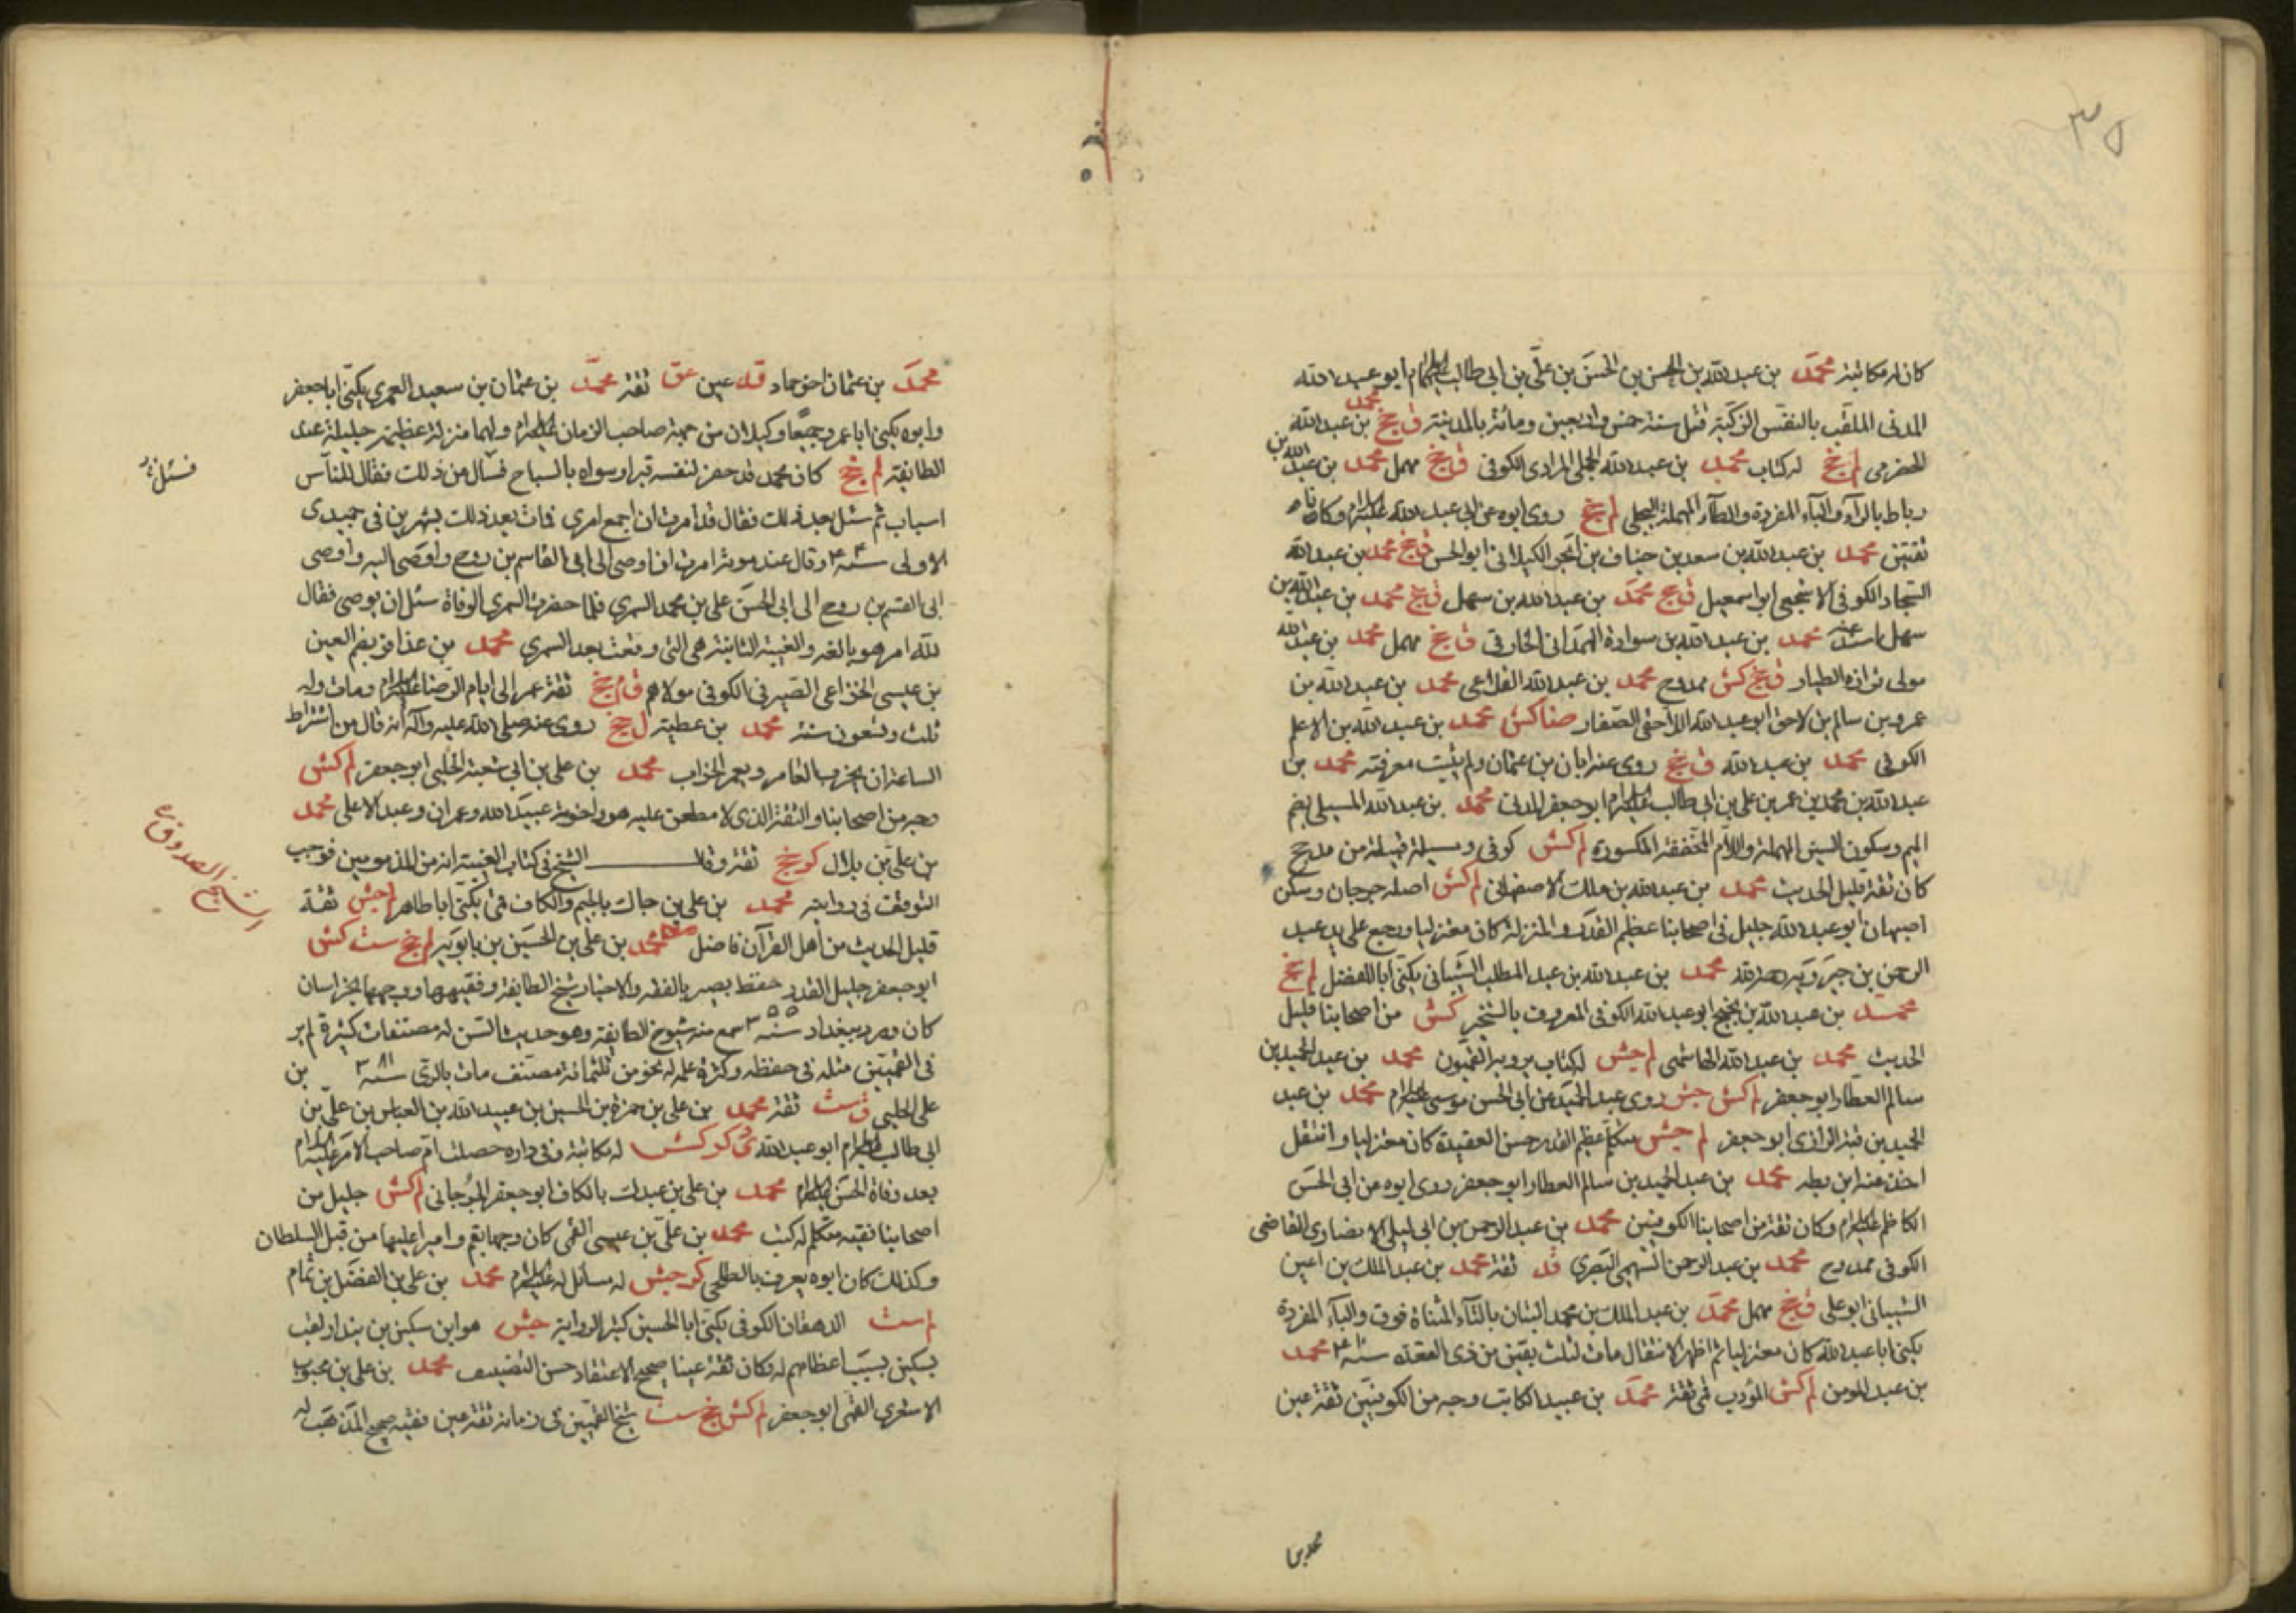 ٣٥
كان له مكاتبة محمد بن عبدالله بن الحسن بن الحسن بن علي بن ابي طالب ابو عبدالله
المدني الملقب بالنفس الزكية قتل سنة خمس واربعين ومائة بالمدينة ق جخ محمد بن عبدالله
الحضرمي لم جخ له كتاب محمد بن عبدالله الجملي المرادي الكوفي ق جخ مهمل محمد بن عبدالله بن
رباط بالراء والباء المفردة والطاء المهملة البجلي لم جخ روى ابوه عن ابي عبدالله وكانا
ثقتين محمد بن عبدالله بن سعد بن حيان بن ابجر الكناني ابو الحسن ق جخ محمد بن عبدالله
الكوفي الاشجعي ابو اسمعيل ق جخ محمد بن عبدالله بن سهل ق جخ محمد بن عبدالله بن
سهل اسند عنه محمد بن عبدالله بن سوادة الهمداني الخارقي ق جخ مهمل محمد بن عبدالله
الطيار ق جخ كش ممدوح محمد بن عبدالله القلاعي محمد بن عبدالله بن
عمرو بن سالم بن لاحق ابو عبدالله اللاحقي الصفار ضا كش محمد بن عبدالله بن الاعلم
الكوفي محمد بن عبدالله ق جخ روى عنه ابان بن عثمان ولم يثبت معرفته محمد بن
عبدالله بن محمد بن عمر بن علي بن ابي طالب ابو جعفر المدني محمد بن عبدالله المسيلي بضم
الميم وسكون السين المهملة واللام المخففة المكسورة لم كش كوفي ومسيلة قبيلة من مذحج
كان ثقة قليل الحديث محمد بن عبدالله بن مملك الاصفهاني لم كش اصله جرجان وسكن
اصبهان ابو عبدالله جليل في اصحابنا عظيم القدر والمنزلة كان معتزليا ورجع على يد عبد
الرحمن بن جبرويه رحمه الله محمد بن عبدالله بن عبد المطلب الشيباني يكنى ابا المفضل لم جخ
محمد بن عبدالله بن نجيح ابو عبدالله الكوفي المعروف بالشخير كش من اصحابنا قليل
الحديث محمد بن عبدالله الهاشمي لم جش له كتاب يرويه القميون محمد بن عبد الحميد بن
سالم العطار ابو جعفر لم كش جش روى عبد الحميد عن ابي الحسن موسى محمد بن عبد
الرحمن بن قبة الرازي ابو جعفر لم جش متكلم عظيم القدر حسن العقيدة كان معتزليا وانتقل
اخذ عنه ابن بطه محمد بن عبد الحميد بن سالم العطار ابو جعفر روى ابوه عن ابي الحسن
الكاظم وكان ثقة من اصحابنا الكوفيين محمد بن عبد الرحمن بن ابي ليلى الانصاري القاضي
الكوفي ممدوح محمد بن عبد الرحمن السهمي البصري قد ثقة محمد بن عبد الملك بن اعين
الشيباني ابو علي ق جخ مهمل محمد بن عبد الملك بن محمد التبان بالتاء المثناة فوق والباء المفردة
يكنى ابا عبدالله كان معتزليا ثم اظهر الانتقال مات لثلث بقين من ذي القعدة سنة محمد
بن عبد المومن لم كش المؤدب قمي ثقة محمد بن عبيد الكاتب وجه من الكوفيين ثقة عين
محمد بن
محمد بن عثمان اخو حماد قد عين عق ثقة محمد بن عثمان بن سعيد العمري يكنى ابا جعفر
وابوه يكنى ابا عمرو جميعا وكيلان من جهة صاحب الزمان ولهما منزلة عظيمة جليلة عند
الطايفة لم جخ كان محمد قد حفر لنفسه قبرا وسواه بالساج فسأل عن ذلك فقال للناس
اسباب ثم سئل بعد ذلك فقال قد امرت ان اجمع امري فمات بعد ذلك بشهرين في جميدى
الاولى سنة وقال عند موته امرت ان اوصي الى ابي القاسم بن روح واوصى اليه واوصى
ابي القسم بن روح الى ابي الحسن علي بن محمد السمري فلما حضرت السمري الوفاة سئل ان يوصي فقال
لله امر هو بالغه والغيبة الثانية هي التي وقعت بعد السمري محمد بن عذافر بضم العين
بن عيسى الخزاعي الصيرفي الكوفي مولاهم ق م جخ ثقة عمر الى ايام الرضا ومات وله
ثلث وتسعون سنة محمد بن عطية ل جخ روى عنه صلى الله عليه وآله انه قال من اشراط
الساعة ان يخرب العامر ويعمر الخراب محمد بن علي بن ابي شعبة الحلبي ابو جعفر لم كش
وجه من اصحابنا والثقة الذي لا مطعن عليه هو واخوته عبيدالله وعمران وعبد الاعلى محمد
بن علي بن بلال كر جخ ثقة وقال الشيخ في كتاب الغيبة انه من المذمومين فوجب
التوقف في روايته محمد بن علي بن جاك بالجيم والكاف قمي يكنى ابا طاهر لم جش ثقة
قليل الحديث من اهل القرآن فاضل محمد بن علي بن الحسين بن بابويه لم جخ ست كش
ابو جعفر جليل القدر حفظة بصير بالفقه والاخبار شيخ الطايفة وفقيهها ووجهها بخراسان
كان ورد ببغداد سنة ٣٥٥ سمع منه شيوخ الطايفة وهو حديث السن له مصنفات كثيرة لم ير
في القميين مثله في حفظه وكثرة علمه له نحو من ثلثمائة مصنف مات بالري سنة ٣٨١ بن
علي الحلبي ق ست ثقة محمد بن علي بن حمزة بن الحسين بن عبيدالله بن العباس بن علي بن
ابي طالب ابو عبدالله دى كر كش له مكاتبة وفي داره حصلت ام صاحب الامر
بعد وفاة الحسن محمد بن علي بن عبدك بالكاف ابو جعفر الجرجاني لم كش جليل من
اصحابنا فقيه متكلم له كتب محمد بن علي بن عيسى القمي كان وجها بقم واميرا عليها من قبل السلطان
وكذلك كان ابوه يعرف بالطلحي كر جش له مسائل له محمد بن علي بن الفضل بن تمام
لم ست الدهقان الكوفي يكنى ابا الحسين كثير الرواية جش هو ابن سكين بن بنداذ لقب
بسكين بسبب اعظامهم له وكان ثقة عينا صحيح الاعتقاد حسن التصنيف محمد بن علي بن محبوب
الاشعري القمي ابو جعفر لم كش جخ ست شيخ القميين في زمانه ثقة عين فقيه صحيح المذهب له
فسئل
الشيخ الصدوق ره